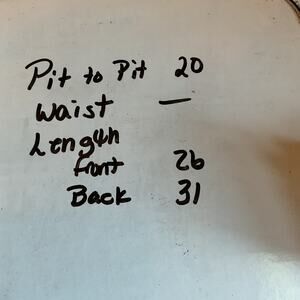 Pit to Pit 20
Waist —
Length
front 26
Back 31